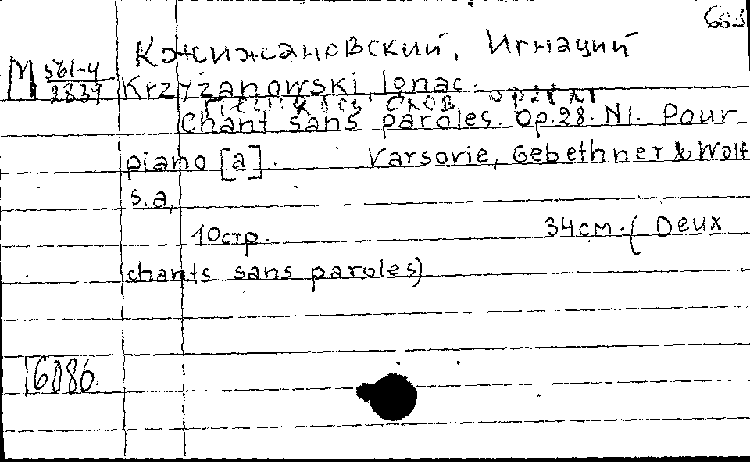 Кжижановский, Игнаций
М 561-4
2839
Krzyżanowski, Ignac.
Песня без слов
Chant sans paroles. Op.28. N1. Pour
piano [a]. Varsovie, Gebethner & Wolf
s.a,
10стр. 34см. (Deux
chants sans paroles)
16086